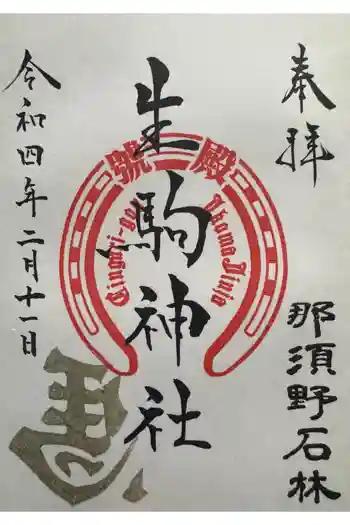 奉拝
那須野石林
生駒神社
殿號
Cinguri-go
Ikoma Jinja
令和四年二月十一日
馬